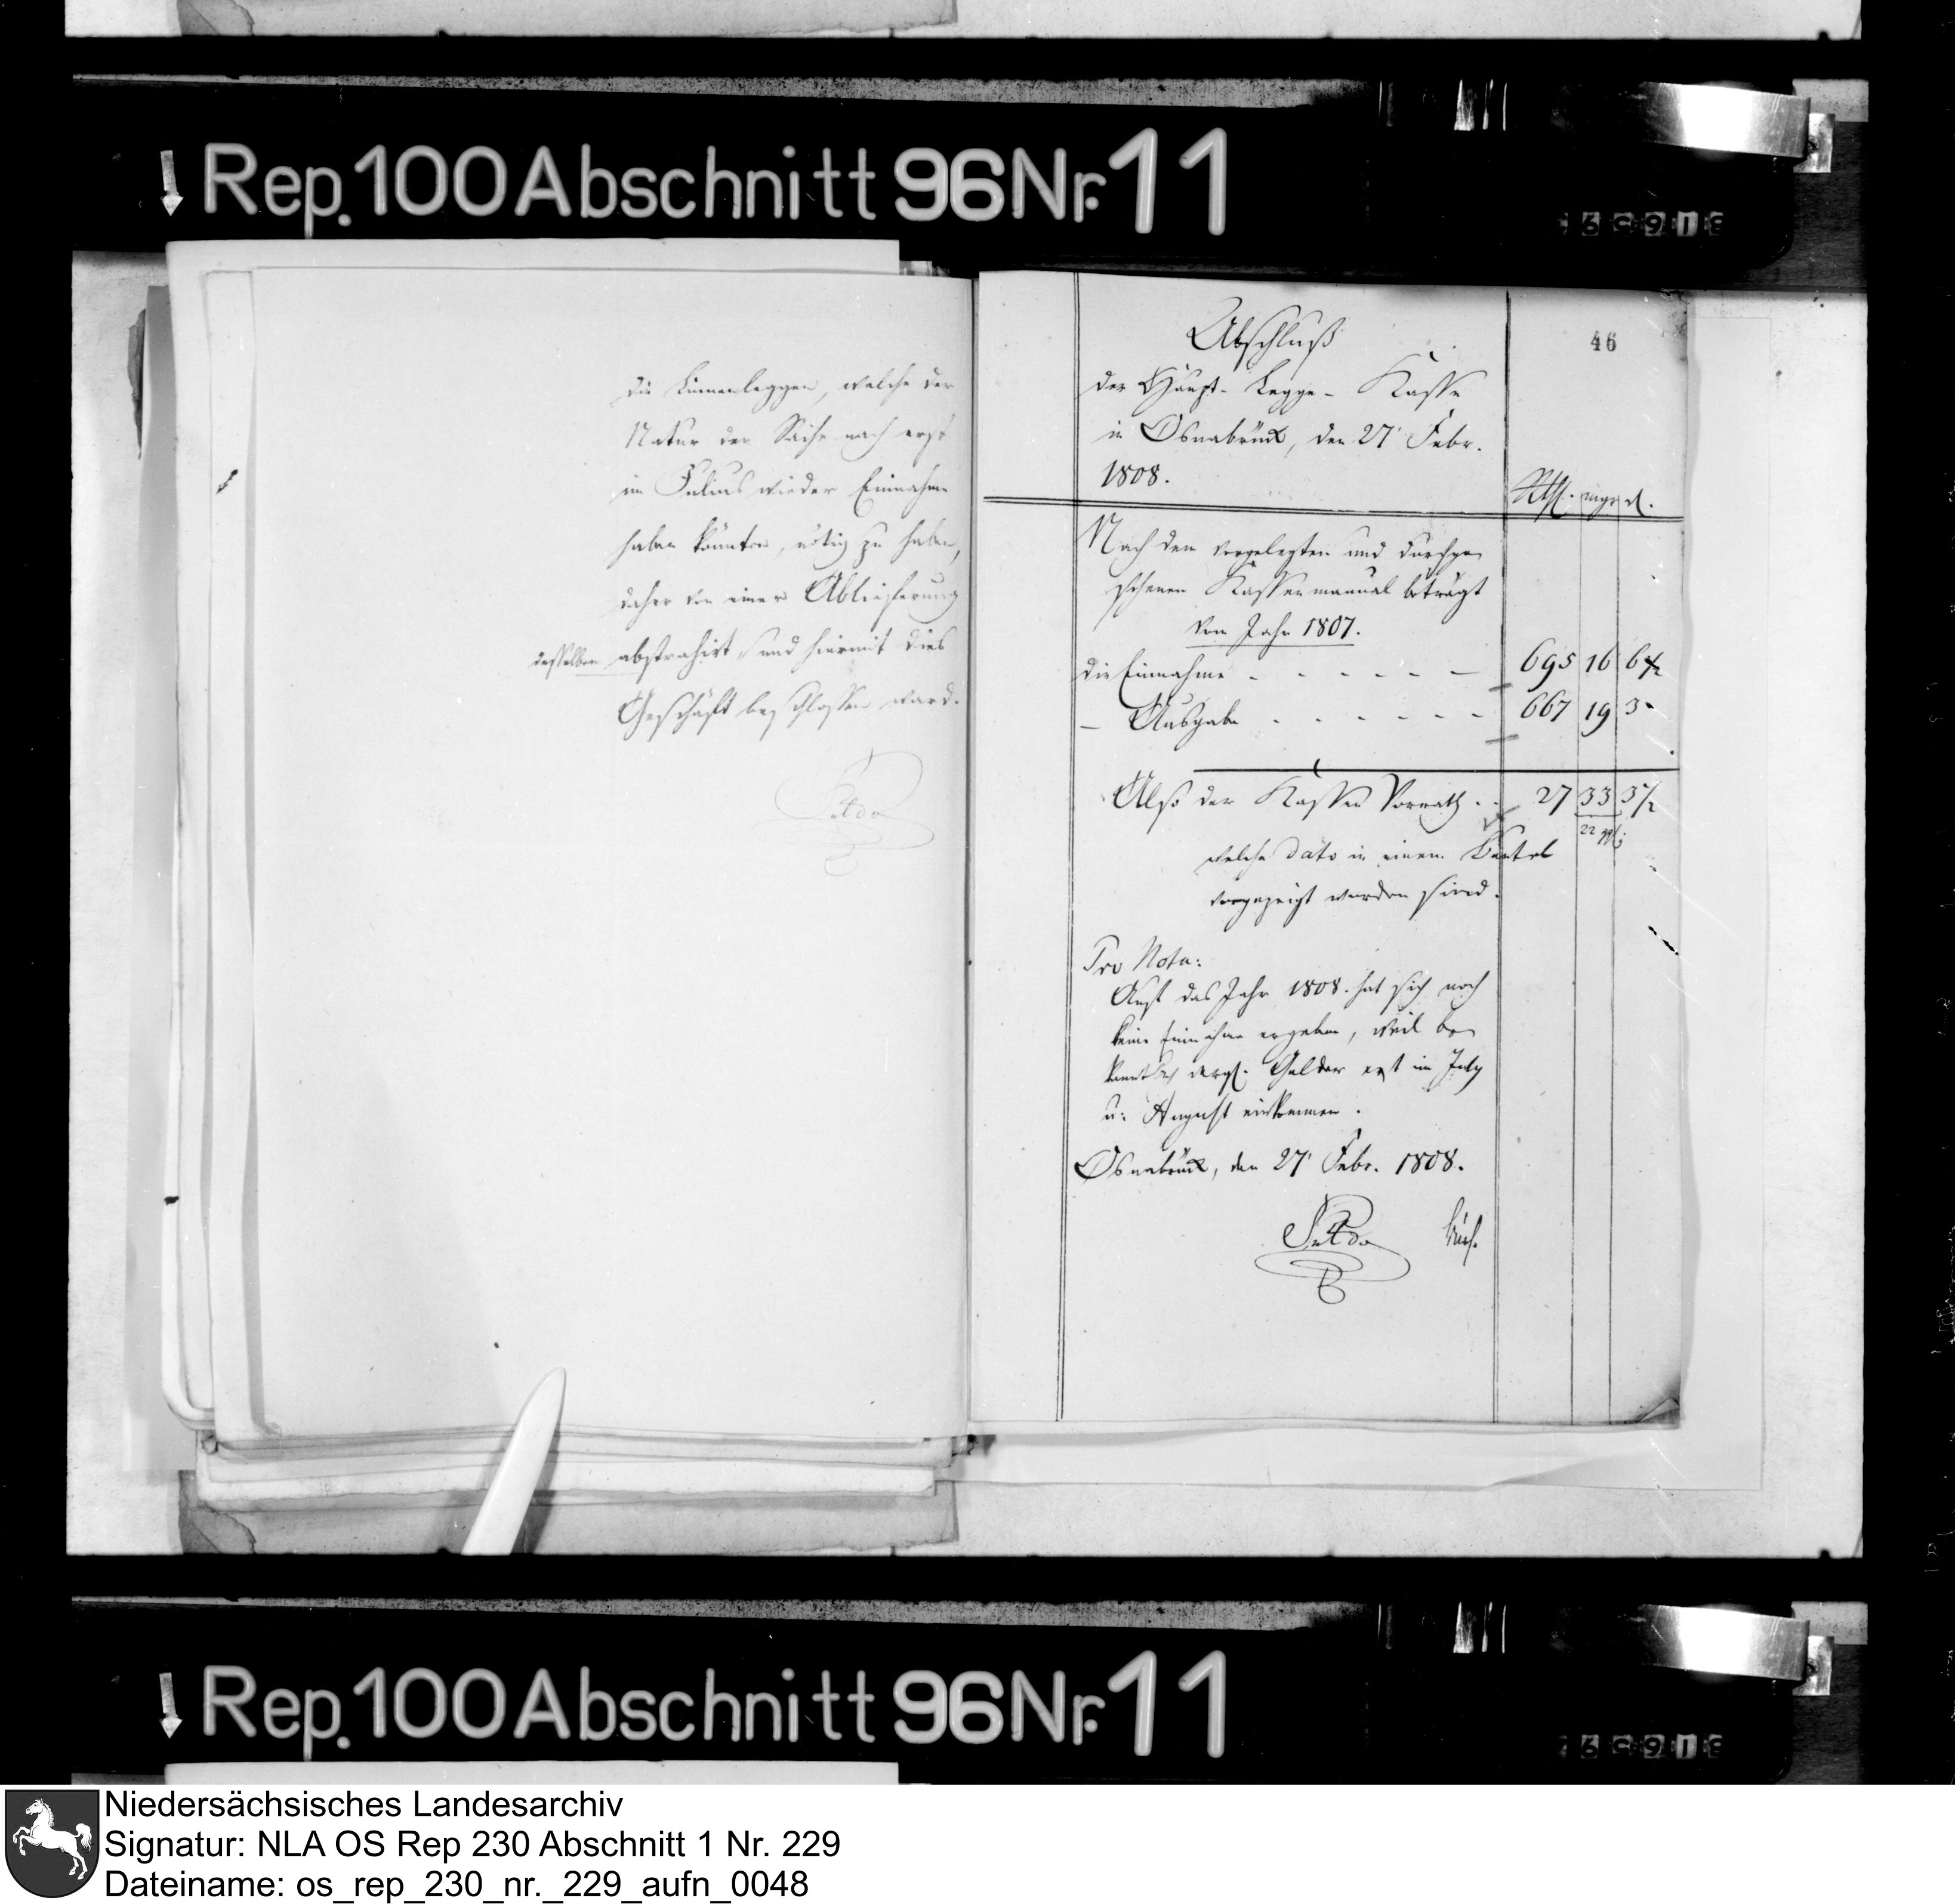 Rep. 100 Abschnitt 96 Nr. 11
die Linnenleggen, welche der
Natur der Sache nach erst
im Julius wieder Einnahme
haben könnten, nötig zu haben,
daher von einer Ablieferung
desselben abstrahirt, und hiermit dies
Geschäft beschlossen ward.
46
Abschluß
der Haupt-Legge-Kasse
in Osnabrück, den 27' Febr.
1808.
Rthl. mgr d.
Nach dem vorgelegten und durchge
sehenen Kassenmanual beträgt
vom Jahr 1807.
die Einnahme - - - - - - 695 16 6½
— Ausgabe - - - - - - 667 19 3
Also der Kassen Vorrath - - 27 33 3½
22 ggl
welche dato in einem Beutel
vorgezeigt worden sind.
Pro Nota:
Auf das Jahr 1808. hat sich noch
keine Einnahme ergeben, weil be
kanntlich dergl. Gelder erst im July
u: August einkommen.
Osnabrück, den 27' Febr. 1808.
Rep. 100 Abschnitt 96 Nr. 11
Niedersächsisches Landesarchiv
Signatur: NLA OS Rep 230 Abschnitt 1 Nr. 229
Dateiname: os_rep_230_nr._229_aufn_0048